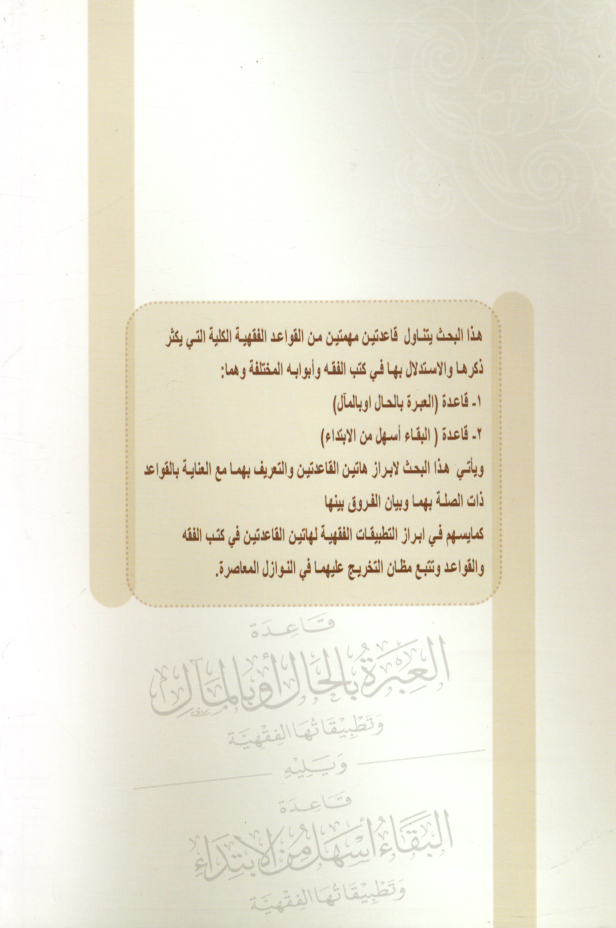 هذا البحث يتناول قاعدتين مهمتين من القواعد الفقهية الكلية التي يكثر
ذكرها والاستدلال بها في كتب الفقه وأبوابه المختلفة وهما:
١- قاعدة (العبرة بالحال اوبالمآل)
٢- قاعدة ( البقاء أسهل من الابتداء)
ويأتي هذا البحث لابراز هاتين القاعدتين والتعريف بهما مع العناية بالقواعد
ذات الصلة بهما وبيان الفروق بينها
كمايسهم في ابراز التطبيقات الفقهية لهاتين القاعدتين في كتب الفقه
والقواعد وتتبع مظان التخريج عليهما في النوازل المعاصرة.
قَاعِدَة
العِبْرَةُ بِالحَالِ أَوْ بِالمَآلِ
وَتَطْبِيْقَاتُهَا الفِقْهِيَّة
وَيَلِيْهِ
قَاعِدَة
البَقَاءُ أَسْهَلُ مِنَ الابْتِدَاءِ
وَتَطْبِيْقَاتُهَا الفِقْهِيَّة